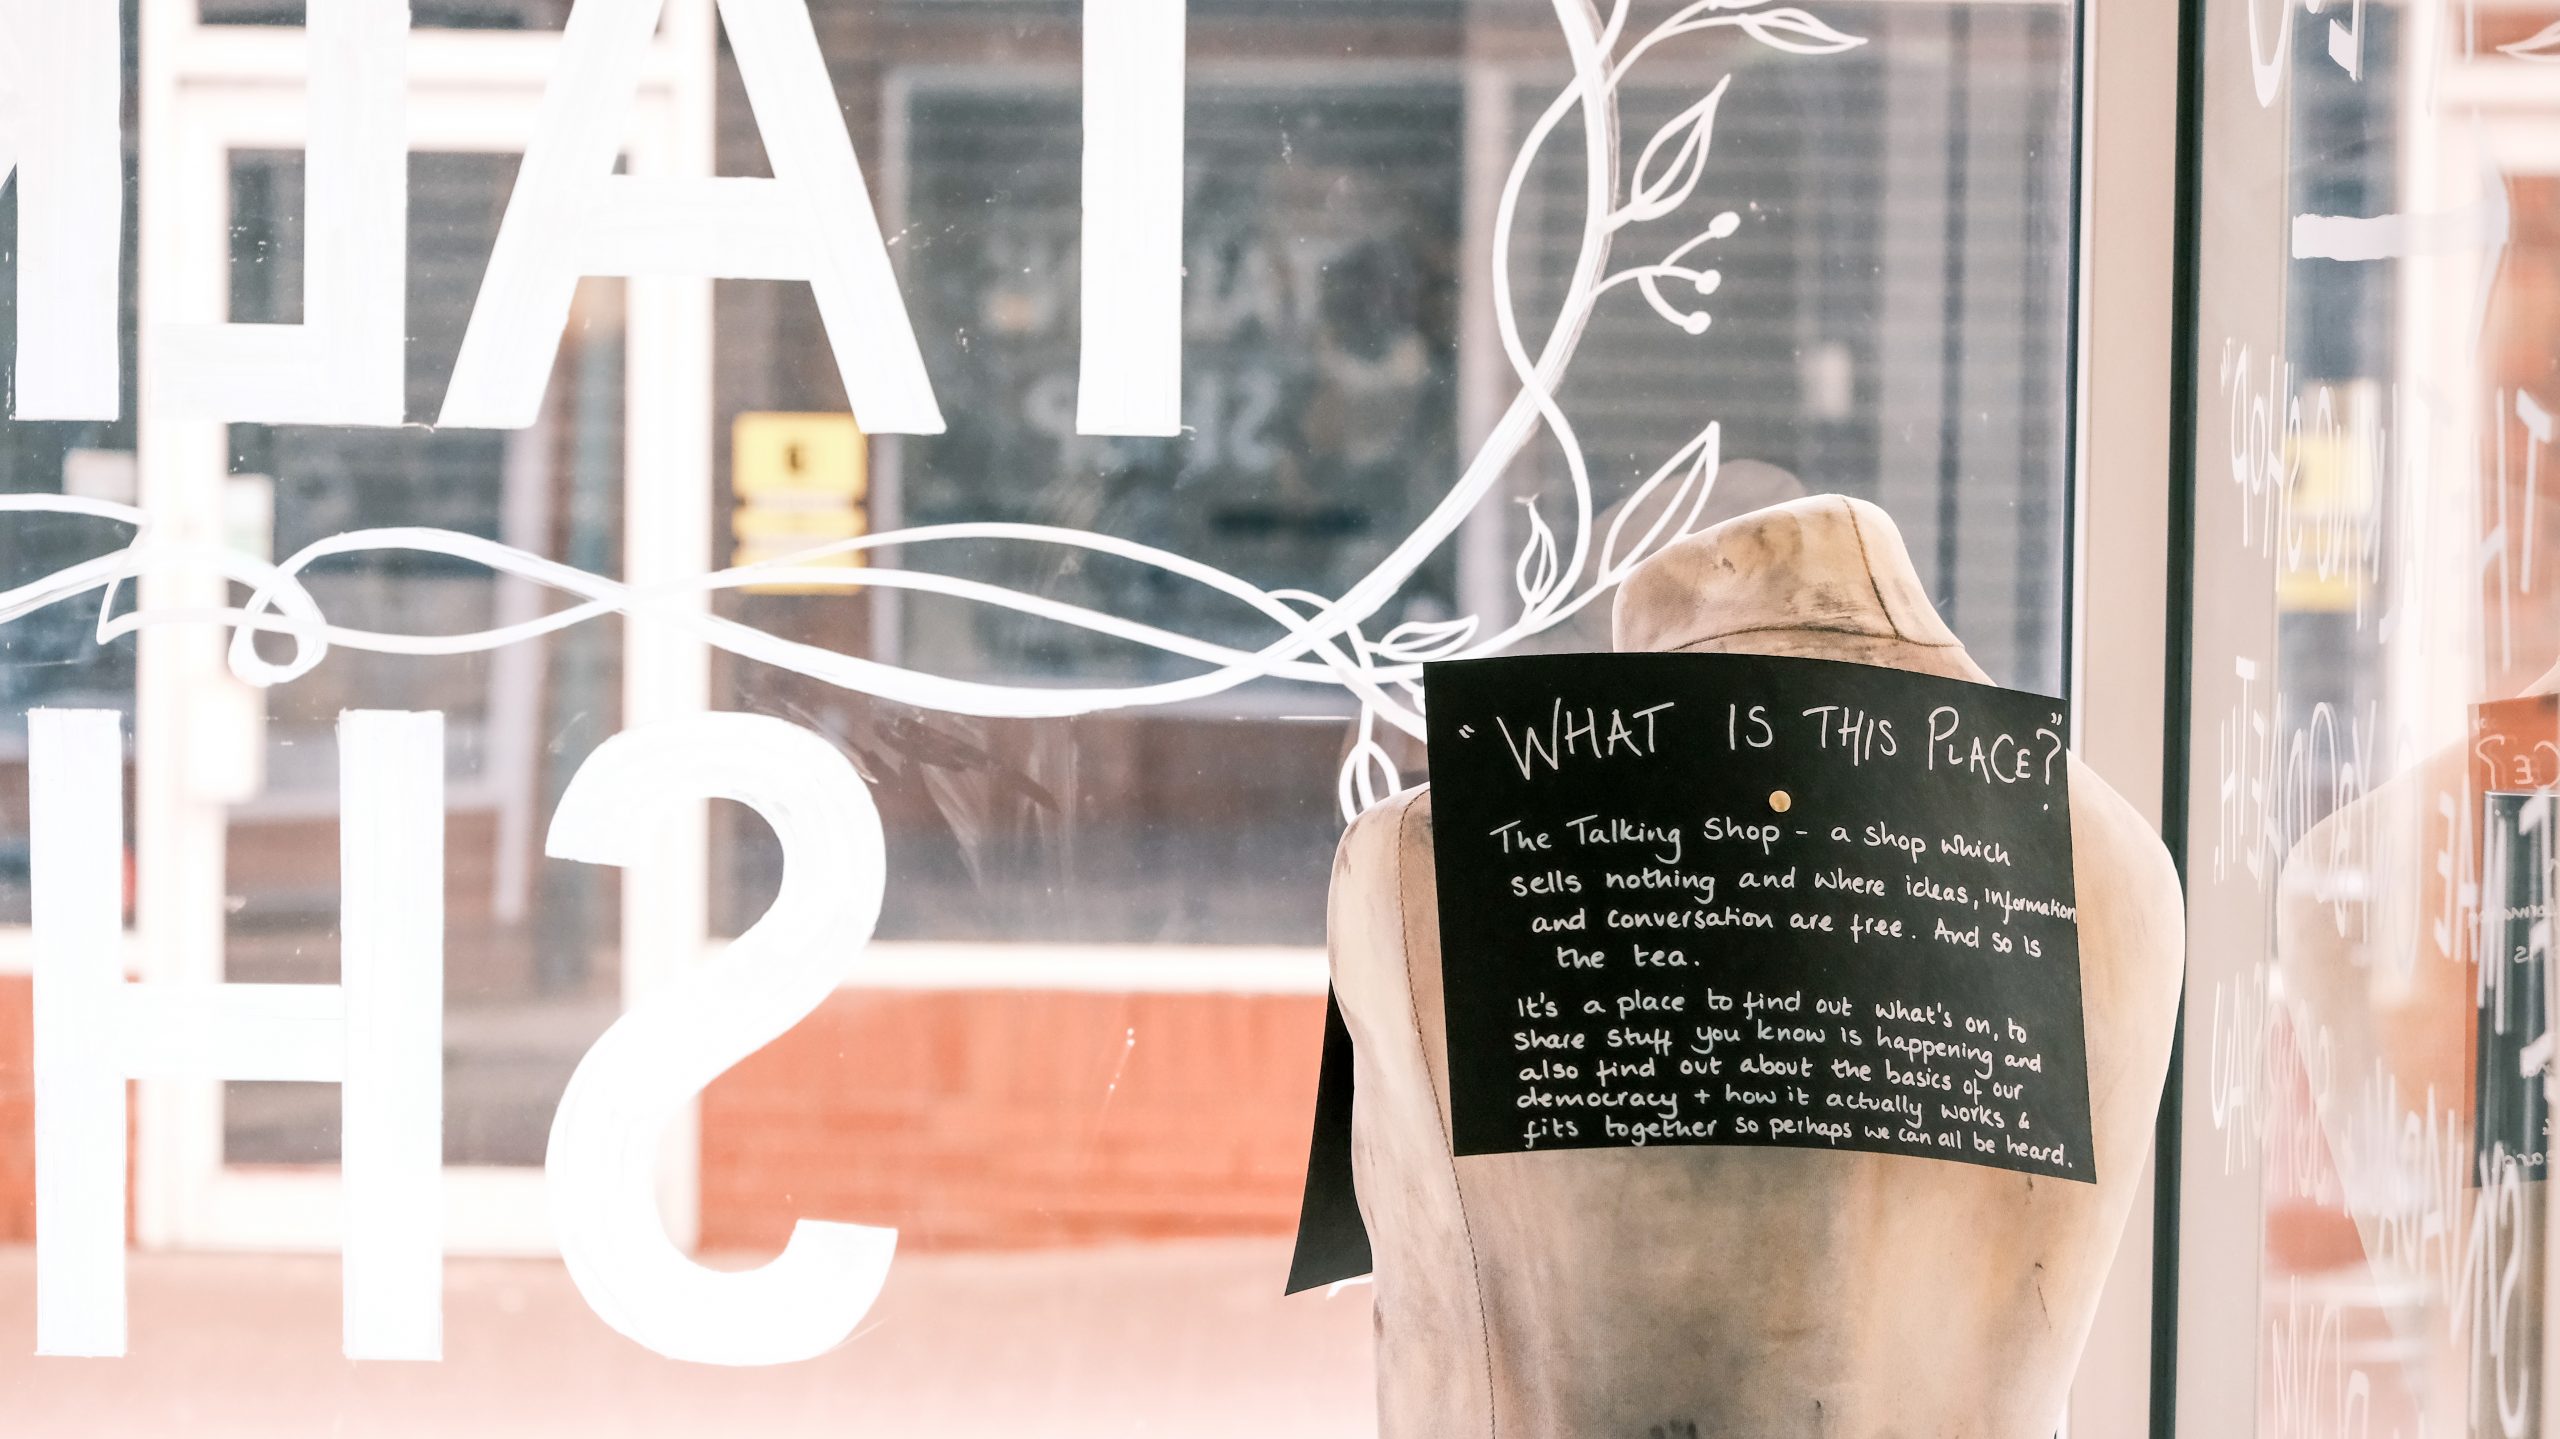 TALK
SH
"WHAT IS THIS PLACE?"
The Talking Shop - a shop which
sells nothing and where ideas, information
and conversation are free. And so is
the tea.
It's a place to find out what's on, to
share stuff you know is happening and
also find out about the basics of our
democracy + how it actually works &
fits together so perhaps we can all be heard.